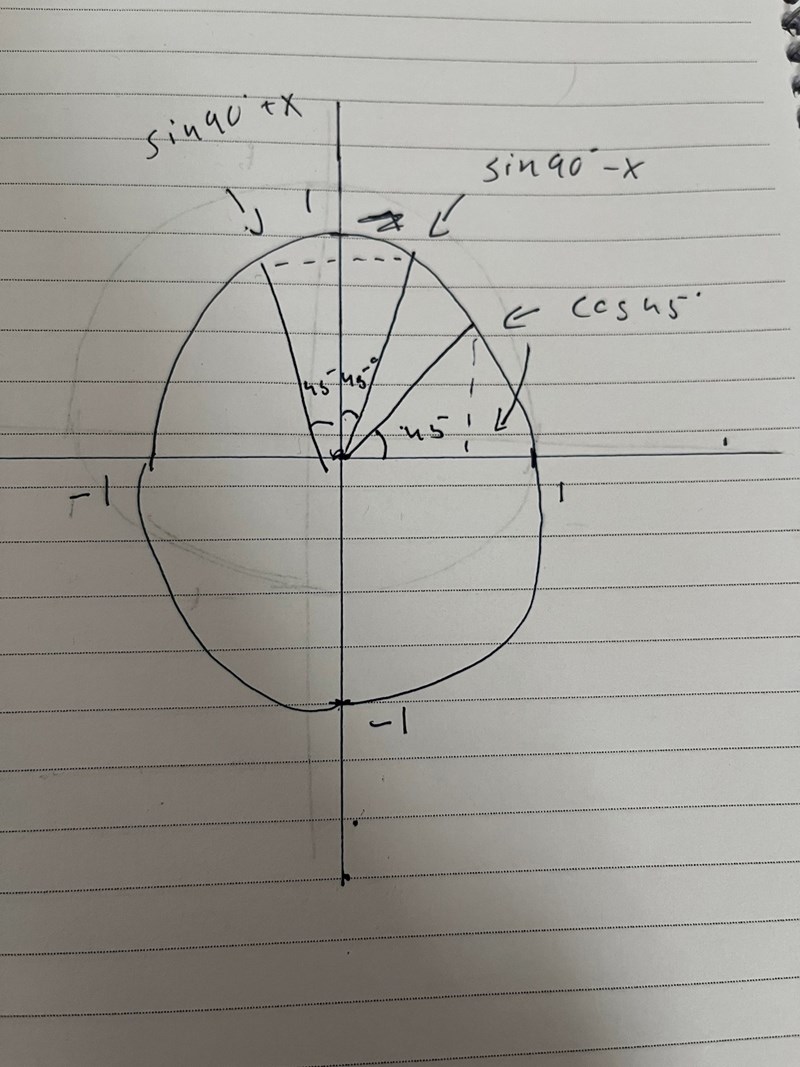 sin90°+x
sin90°-x
1
cos45°
45° 45°
45
-1
1
-1